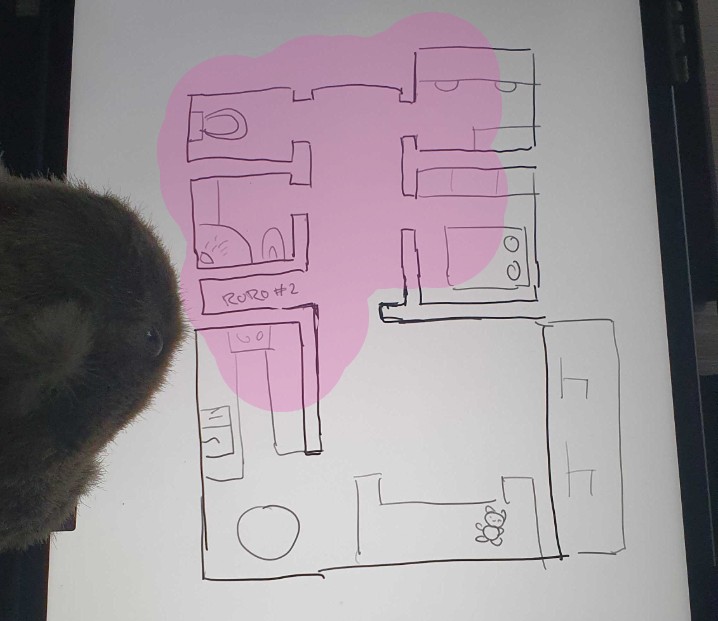 RORO #2